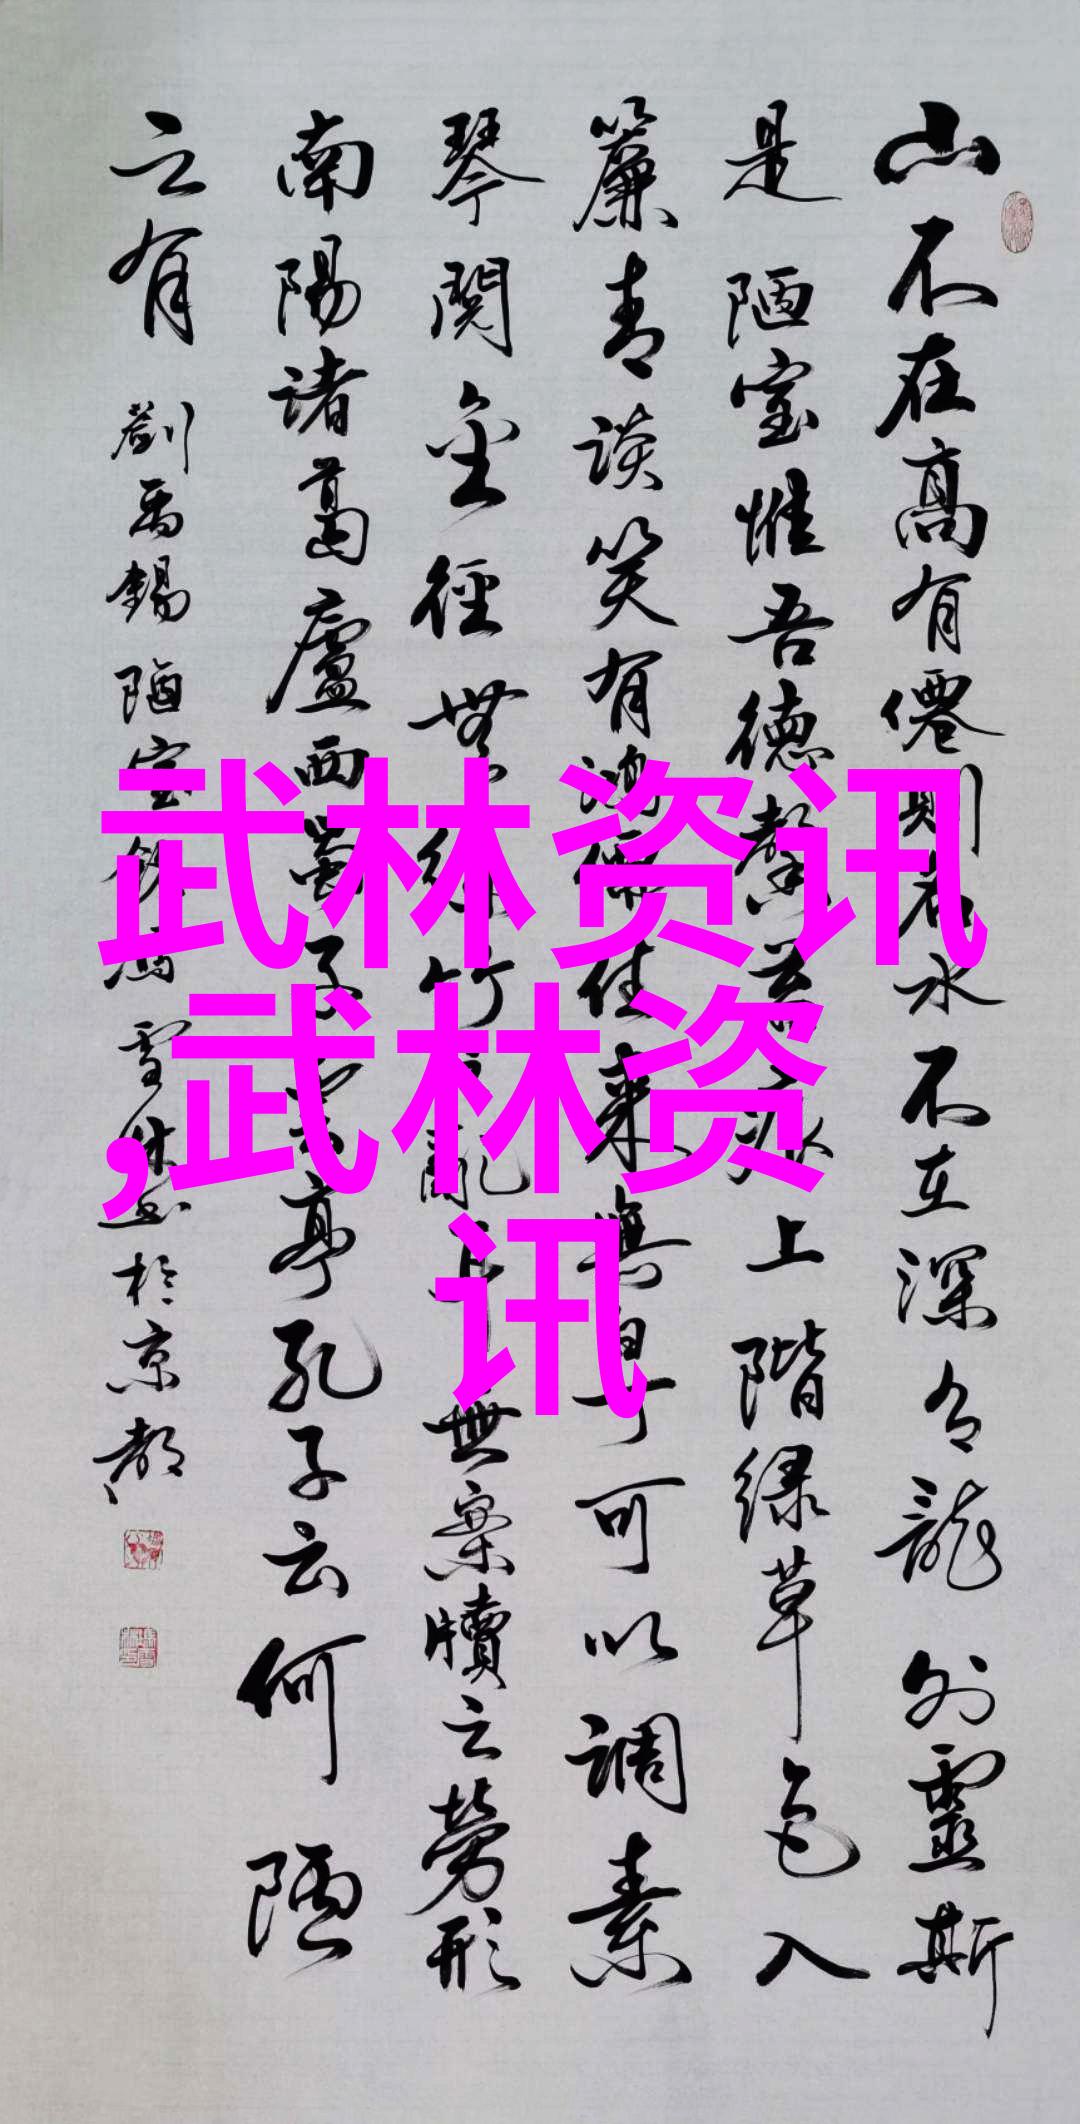 山不在高有僊則名水不在深有龍則靈斯
是陋室惟吾德馨苔痕上階緑草色入
簾青談笑有鴻儒往来無白丁可以調素
琴閲金經無絲竹之亂耳無案牘之勞形
南陽諸葛廬西蜀子雲亭孔子云何陋
之有 劉禹錫陋室銘 雪 於京都
武林资讯
,武林资
讯